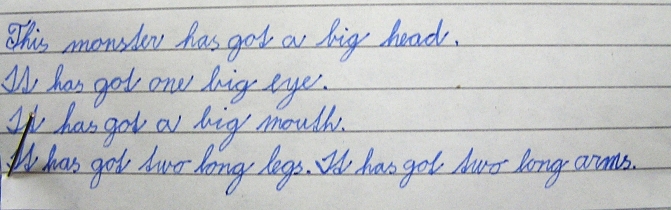 This monster has got a big head.
It has got one big eye.
It has got a big mouth.
It has got two long legs. It has got two long arms.